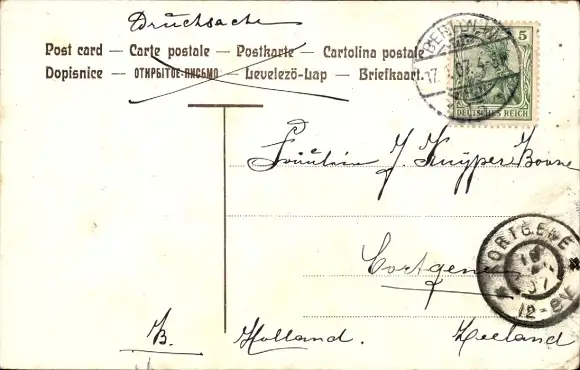 Drucksache
Post card — Carte postale — Postkarte — Cartolina postale
Dopisnice — ОТКРЫТОЕ ПИСЬМО — Levelezö-Lap — Briefkaart.
BERLIN
17.
5
DEUTSCHES REICH
Fräulein J. Kuÿper Boone
CORTGENE
07
12-8V
Cortgene
Holland. Zeeland